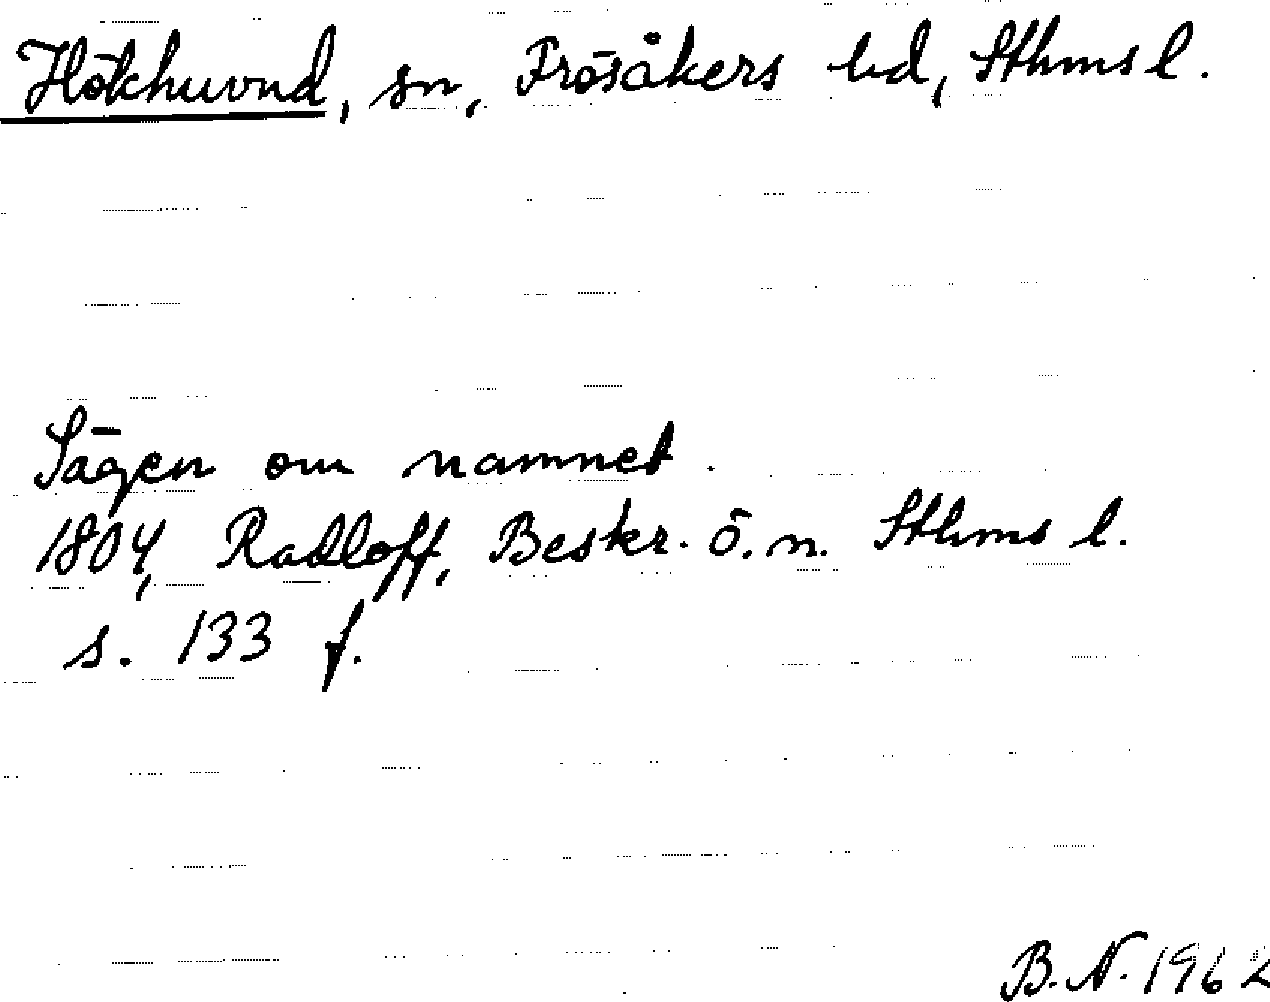 Hökhuvud, sn, Frösåkers hd, Sthms l.
Sägen om namnet.
1804, Radloff, Beskr. ö. n. Sthms l.
s. 133 f.
B.N. 1962